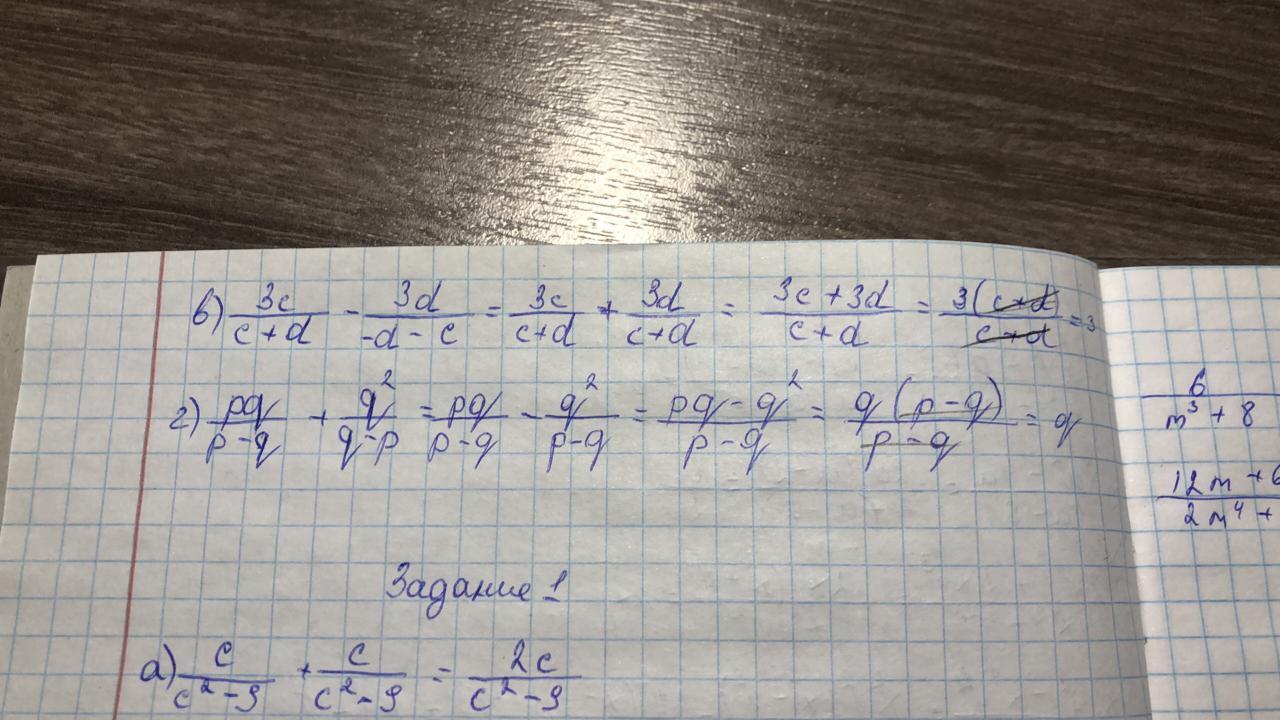 в) 3c/(c+d) - 3d/(-d-c) = 3c/(c+d) + 3d/(c+d) = (3c+3d)/(c+d) = 3(c+d)/(c+d) = 3
г) pq/(p-q) + q²/(q-p) = pq/(p-q) - q²/(p-q) = (pq-q²)/(p-q) = q(p-q)/(p-q) = q
Задание 1
а) c/(c²-9) + c/(c²-9) = 2c/(c²-9)
6/(m³+8)
12m+6
2m⁴+